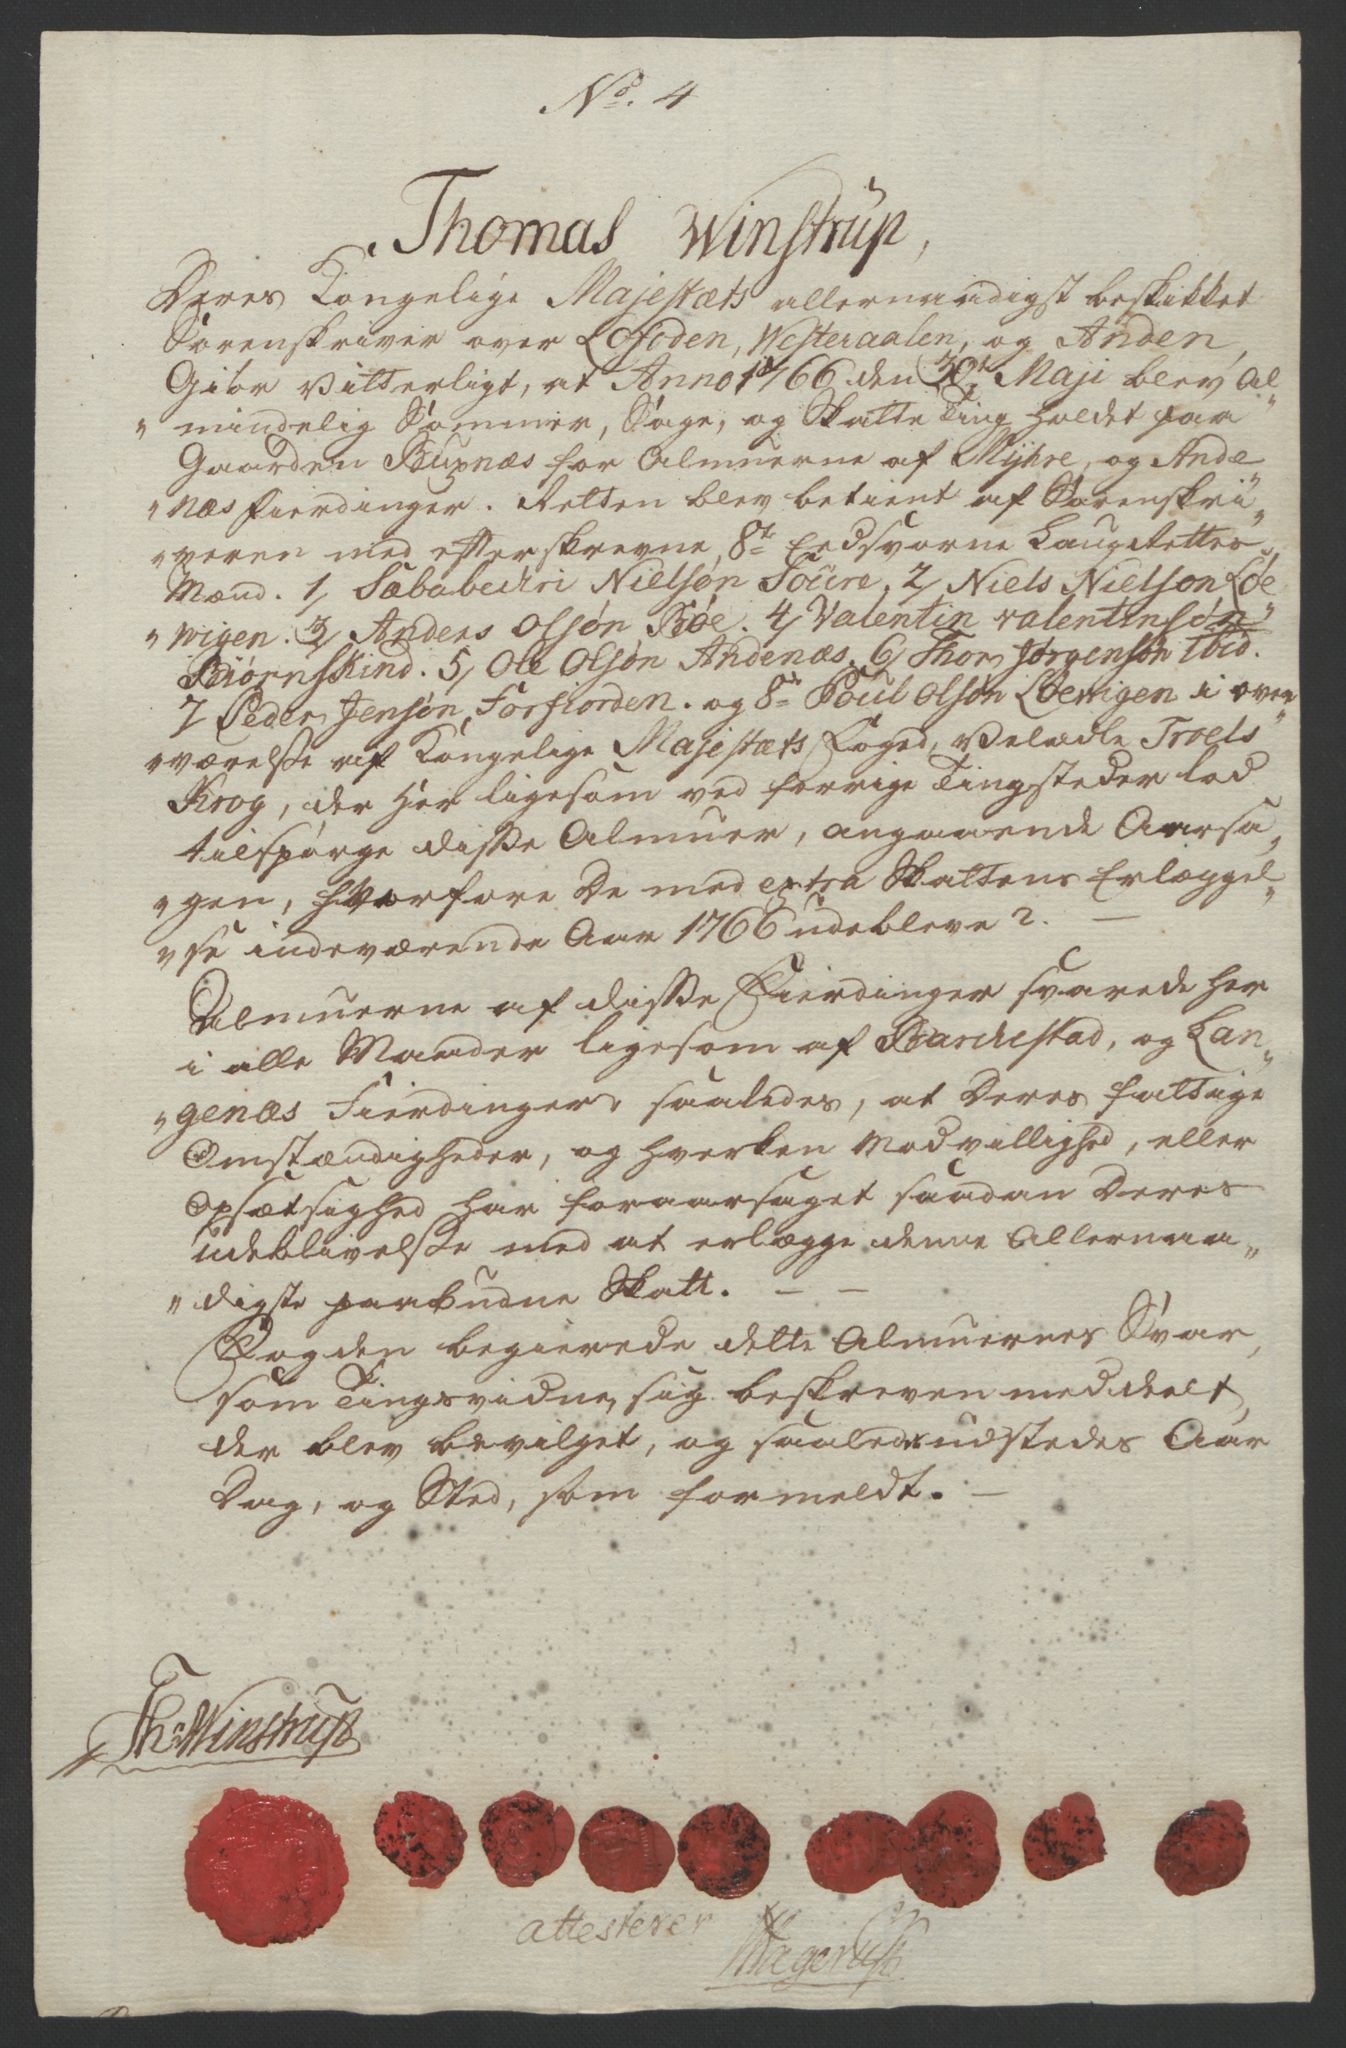 No. 4
Thomas Winstrup,
Deres Kongelige Majestæts allernaadigst beskikket
Sorenskriver over Lofoden, Westeraalen, og Anden,
Giør Vitterligt, at Anno 1766 den 30te Maji blev Al
" mindelig Sommer, Sage, og Skatte Ting holdet paa
Gaarden Buxnæs for Almuerne af Myhre, og Ande
" næs Fierdinger. Retten blev betient af Sorenskri "
" veren med efterskrevne 8te Eedsvorne Laugrettes
Mænd. 1, Nielsøn 2, Niels Nielson Løe
" wigen. 3, Anders Olsøn Bøe. 4, Valentin Valentinsøn
Biørnskind. 5, Ole Olsøn Andenæs. 6, Thor Jørgensøn Ibid.
7 Peder Jensøn, Forfiorden. og 8de Poul Olsøn Løewigen i over
" værelse af Kongelige Majestæts Foged, Velædle Troels
Krog, der her ligesom ved forrige Tingsteder lod
tilspørge disse Almuer, angaaende Aarsa "
" gen, hvorfore De med extra Skattens Erlæggel "
" se indeværende Aar 1766 udebleve? —
Almuerne af disse Fierdinger svarede her
i alle Maader ligesom af Barchestad, og Lan "
" genæs Fierdinger, saaledes, at Deres fattige
Omstændigheder, og hverken Modvillighed, eller
Opsætsighed har foraarsaget saadan Deres
udeblivelse med at erlægge denne Allernaa "
" digste paabudne Skatt. — —
Fogden begierede dette Almuernes Svar,
som Tingsvidne, sig beskreven meddeelt,
der blev bevilget, og saaledes udstedes Aar
Dag, og Sted, som formeldt. —
Ths Winstrup
attesterer